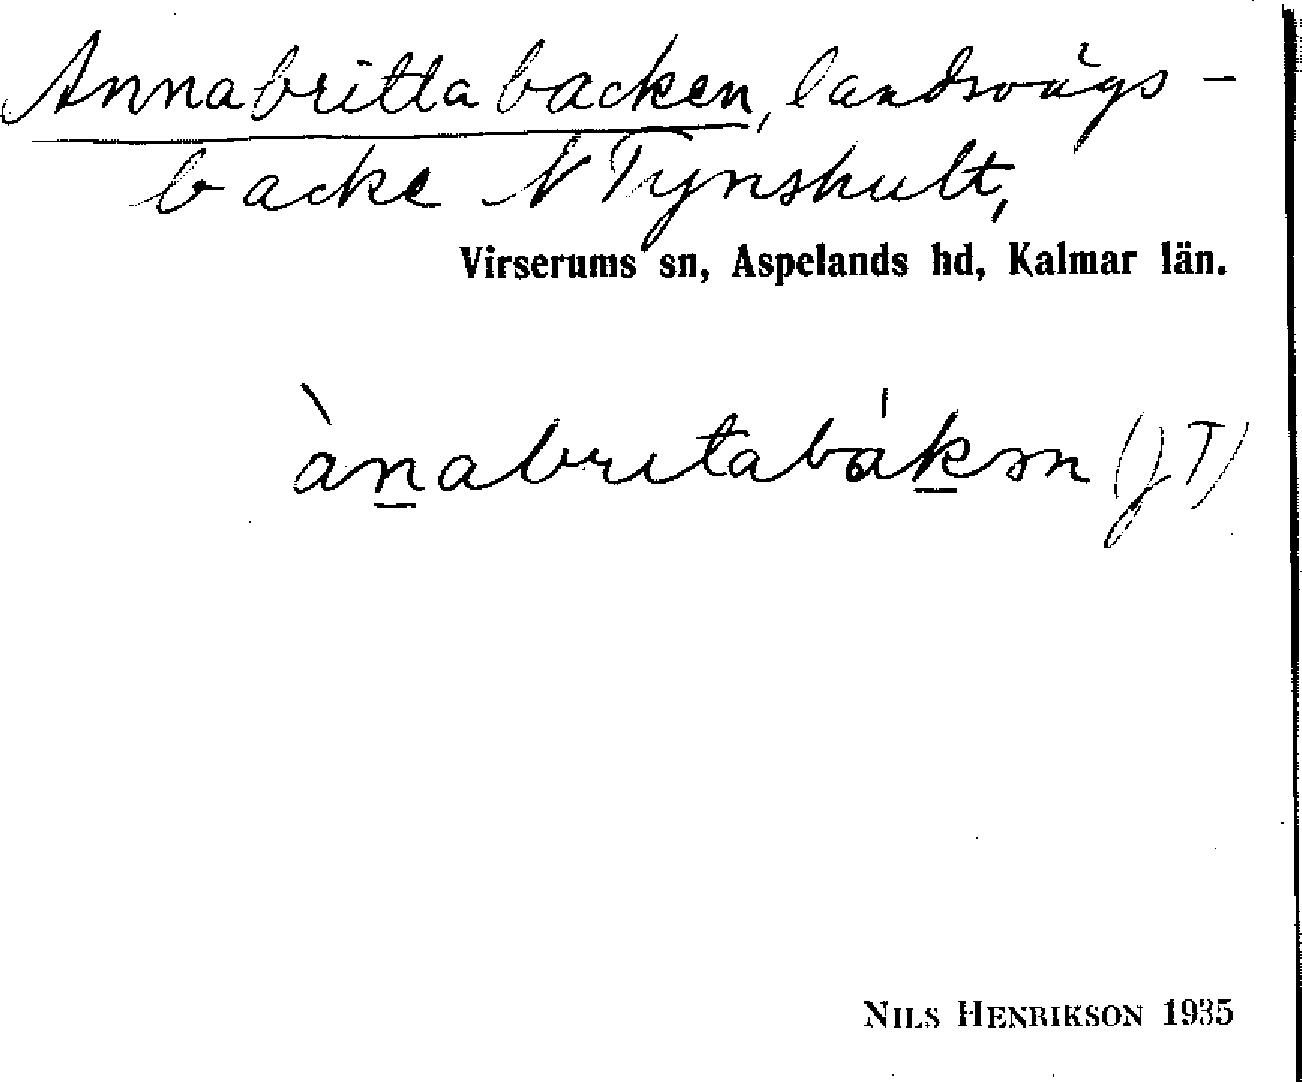 Annabrittabacken, landsvägs-
backe N Tynshult,
Virserums sn, Aspelands hd, Kalmar län.
ànabritabákən (JT)
NILS HENRIKSON 1935